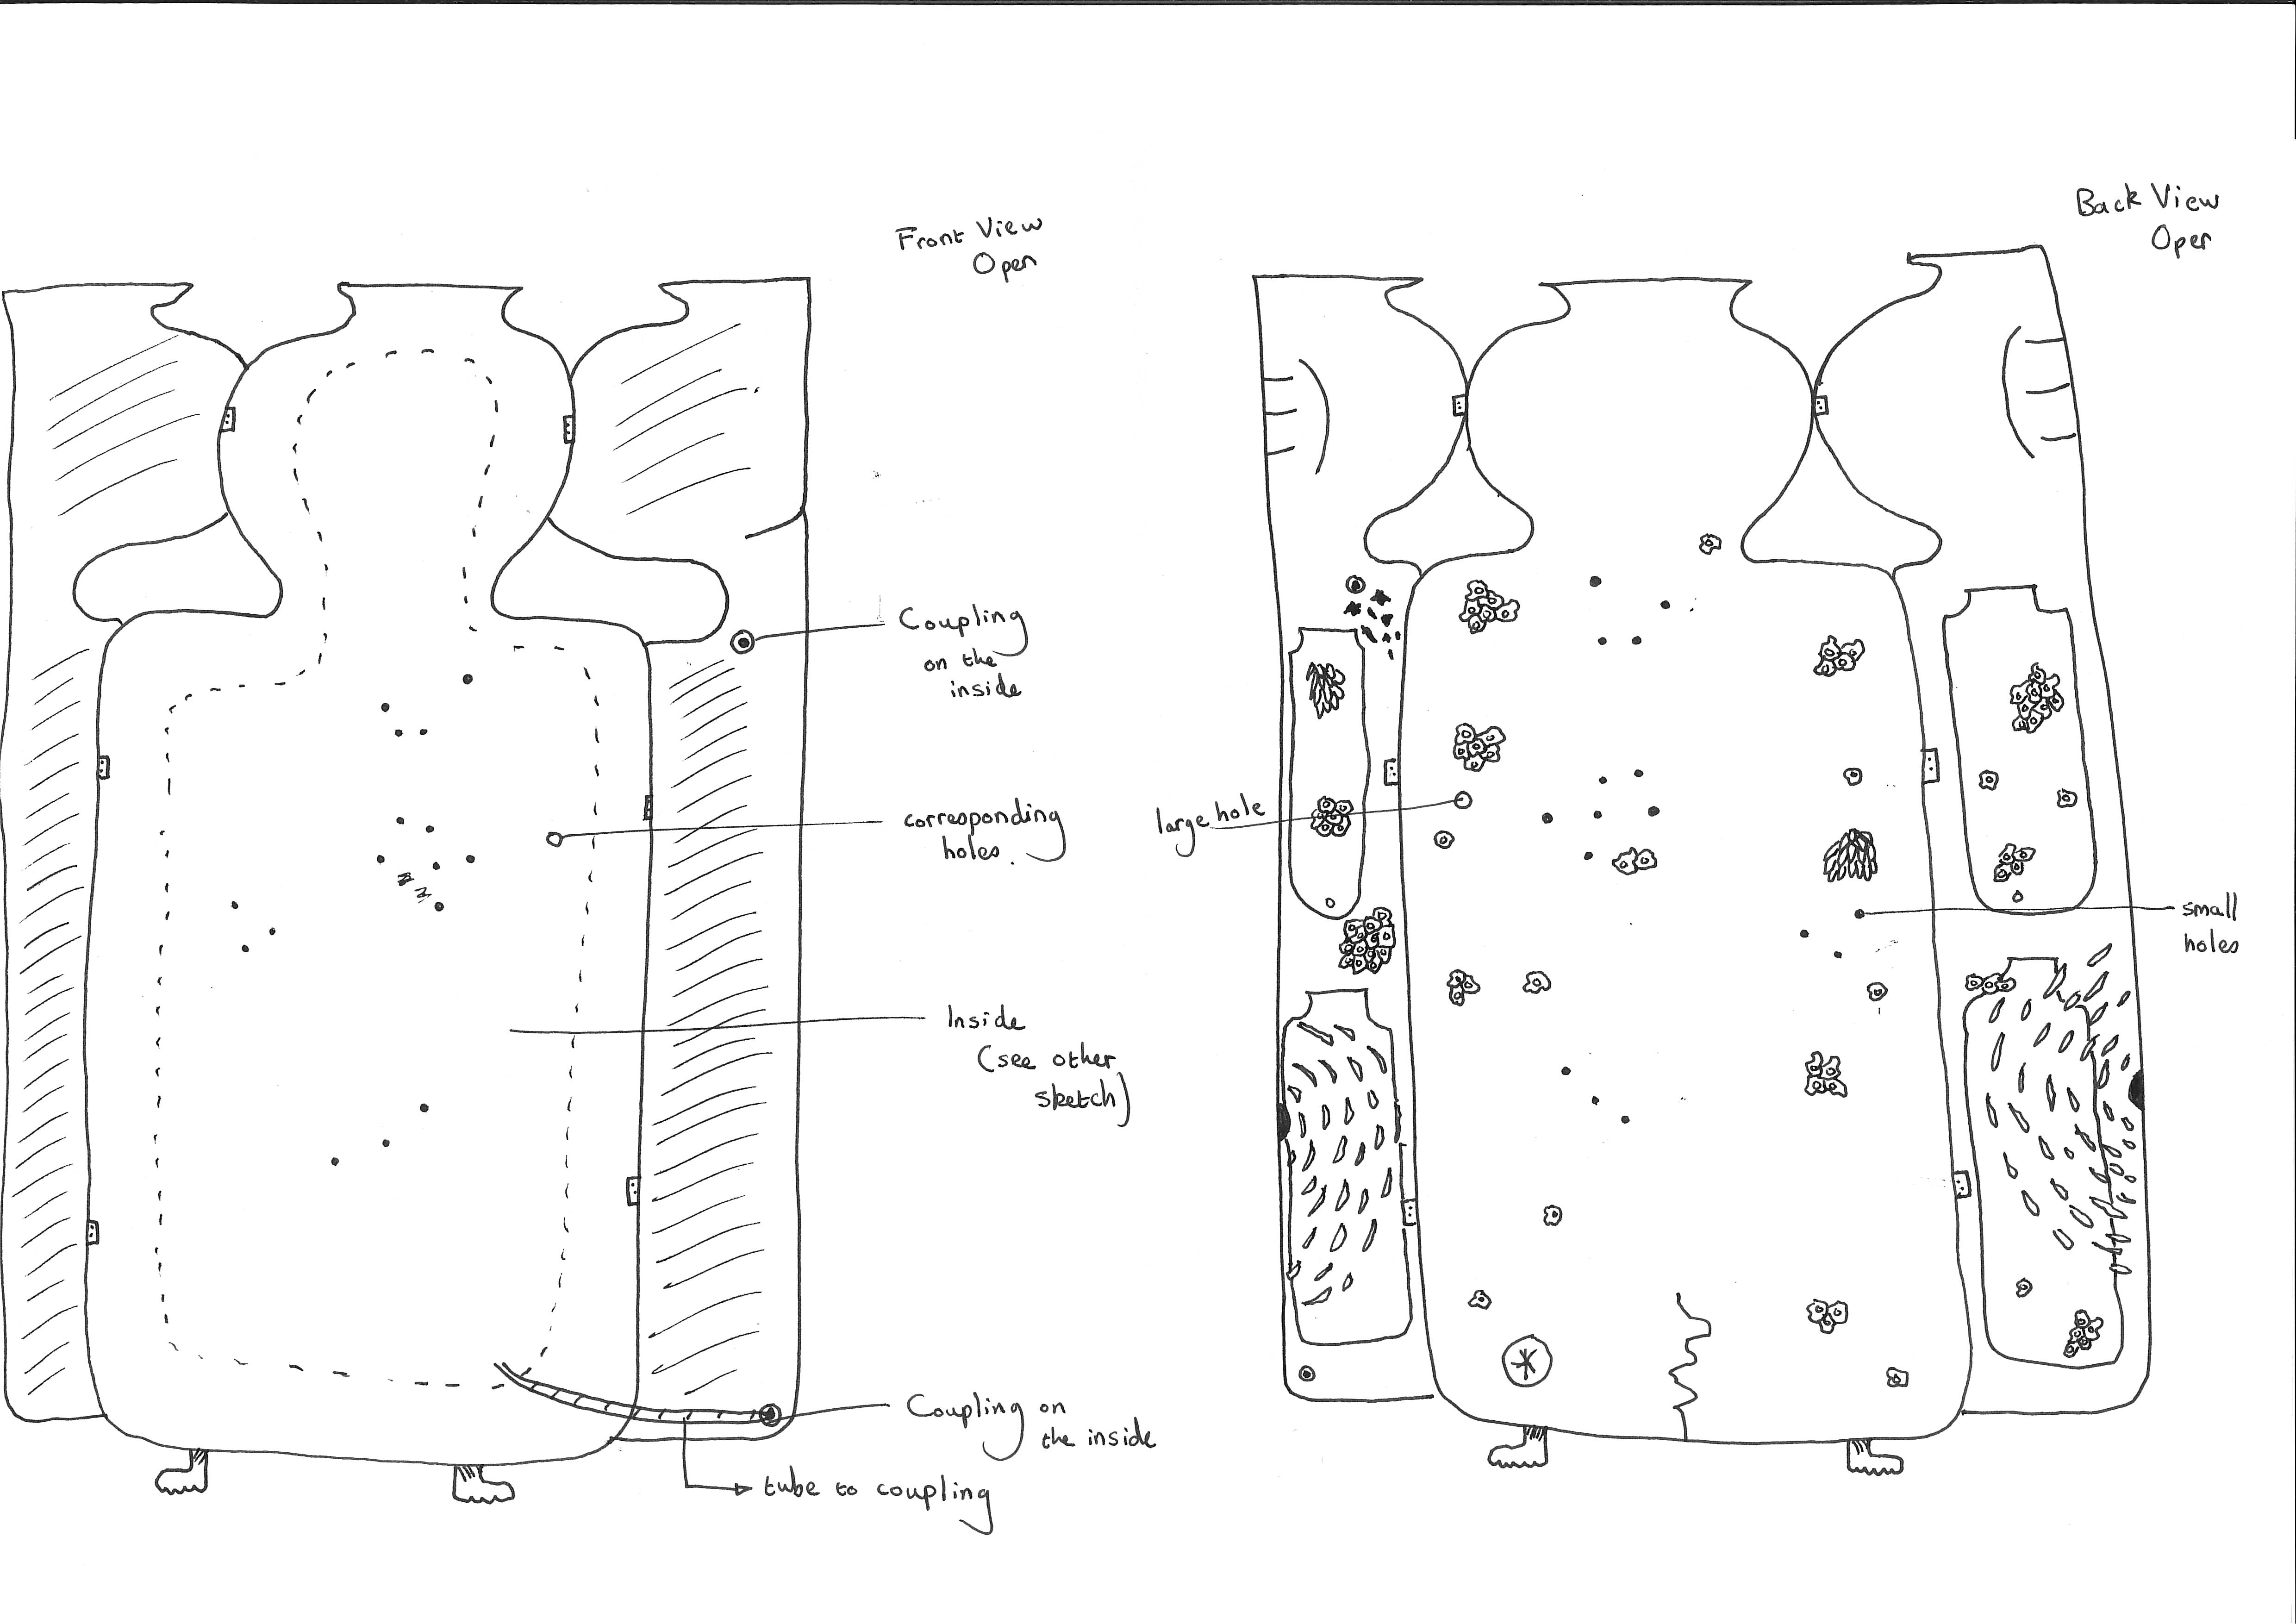 Front View
Open
Coupling
on the
inside
corresponding
holes.
Inside
(see other
sketch)
Coupling on
the inside
tube to coupling
Back View
Open
large hole
small
holes